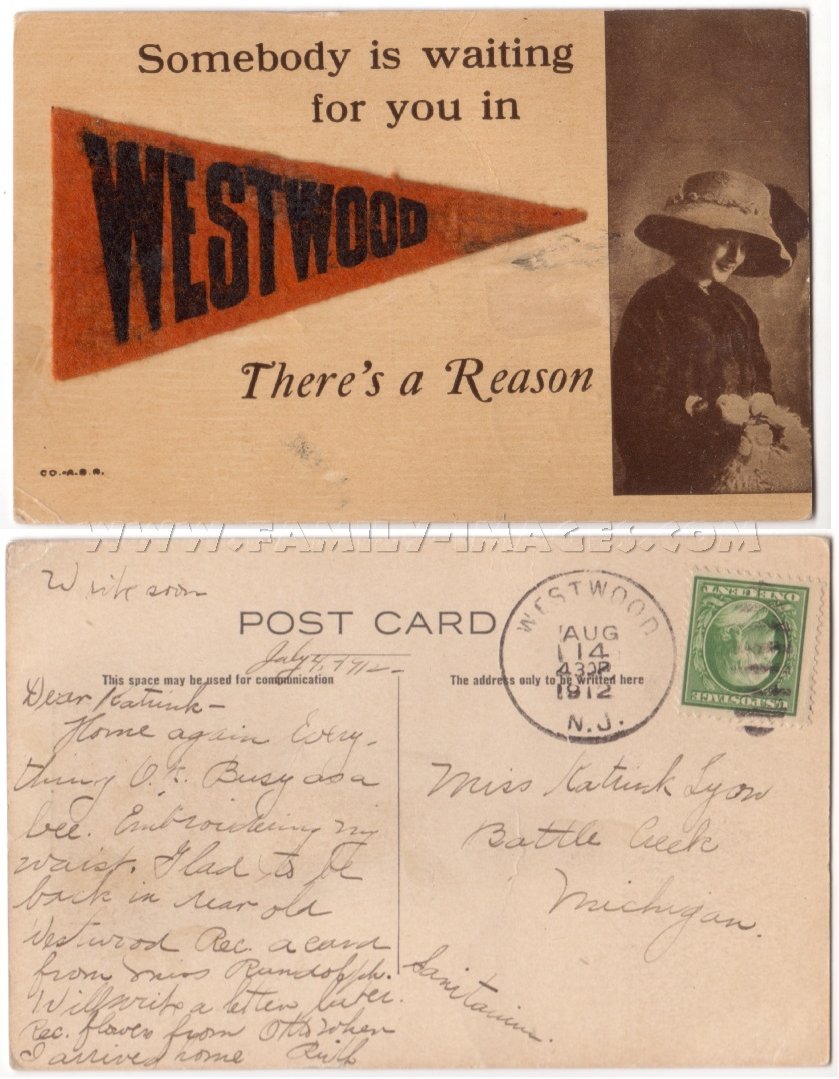 Somebody is waiting
for you in
WESTWOOD
There's a Reason
CO.-A.S.R.
WWW.FAMILY-IMAGES.COM
Write soon
POST CARD
WESTWOOD
AUG
14
430P
1912
N.J.
ONE CENT
U.S. POSTAGE
1912
This space may be used for communication
The address only to be written here
Dear Katrink-
Home again Every-
thing O.K. Busy as a
bee. Embroidering my
waist. Glad to be
back in dear old
Westwood Rec. a card
from Miss Rundolph.
Will write a letter later.
Rec. flowers from Otto when
I arrived home Ruth
Miss Katrink Lyon
Battle Creek
Michigan.
Sanitarium.